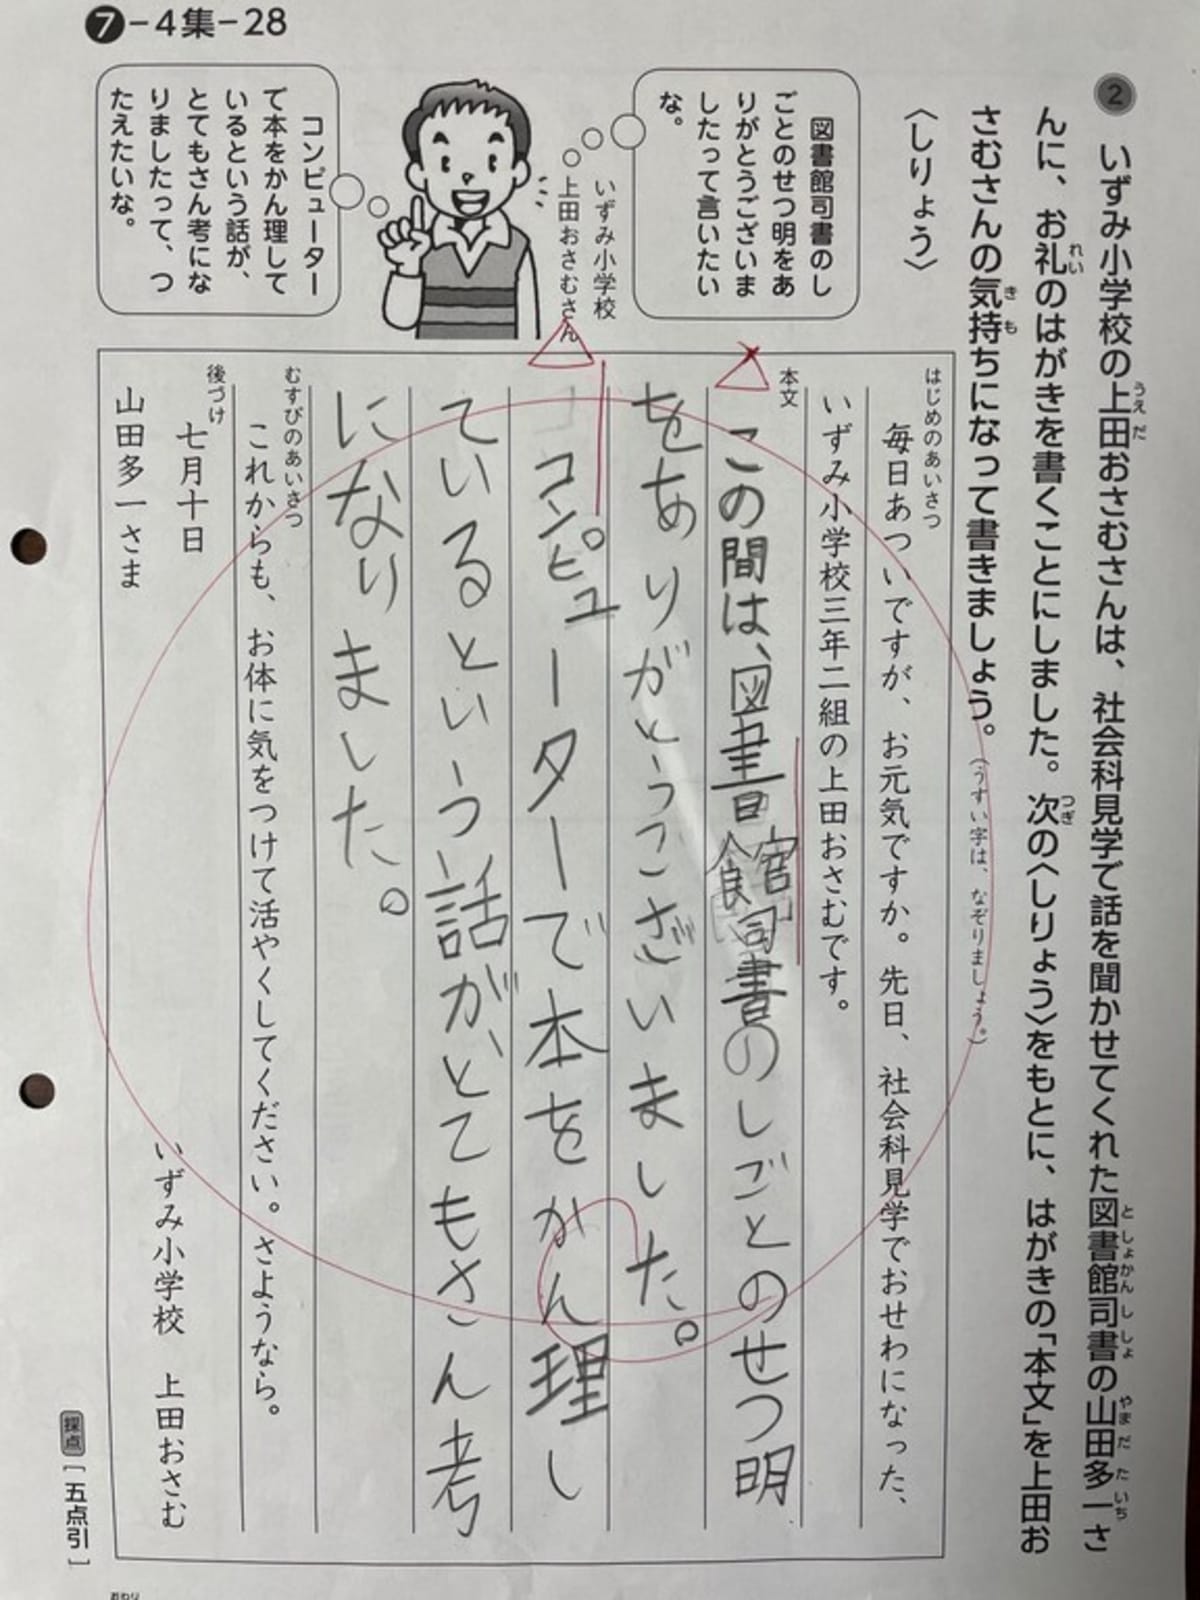 ❼-4集-28
❷ いずみ小学校の上田おさむさんは、社会科見学で話を聞かせてくれた図書館司書の山田多一さ
んに、お礼のはがきを書くことにしました。次の〈しりょう〉をもとに、はがきの「本文」を上田お
さむさんの気持ちになって書きましょう。(うすい字は、なぞりましょう。)
うえ だ
と しょ かん し しょ
やま だ た いち
れい
つぎ
き も
〈しりょう〉
図書館司書のし
ごとのせつ明をあ
りがとうございま
したって言いたい
な。
いずみ小学校
上田おさむさん
コンピューター
で本をかん理して
いるという話が、
とてもさん考にな
りましたって、つ
たえたいな。
はじめのあいさつ
毎日あついですが、お元気ですか。先日、社会科見学でおせわになった、
いずみ小学校三年二組の上田おさむです。
本文
この間は、図書館司書のしごとのせつ明
をありがとうございました。
コンピューターで本をかん理し
ているという話が、とてもさん考
になりました。
むすびのあいさつ
これからも、お体に気をつけて活やくしてください。さようなら。
後づけ
七月十日
いずみ小学校 上田おさむ
山田多一さま
採点 [五点引]
おわり